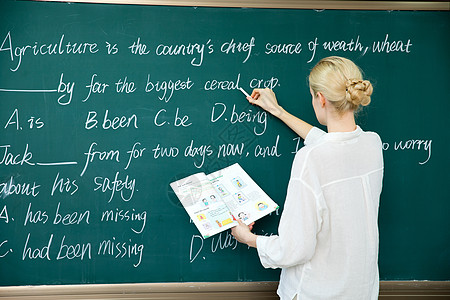 Agriculture is the country's chief source of weath, wheat
______by far the biggest cereal crop.
A. is B. been C. be D. being
Jack______from for two days now, and I to worry
about his safty.
A. has been missing
C. had been missing D. Was